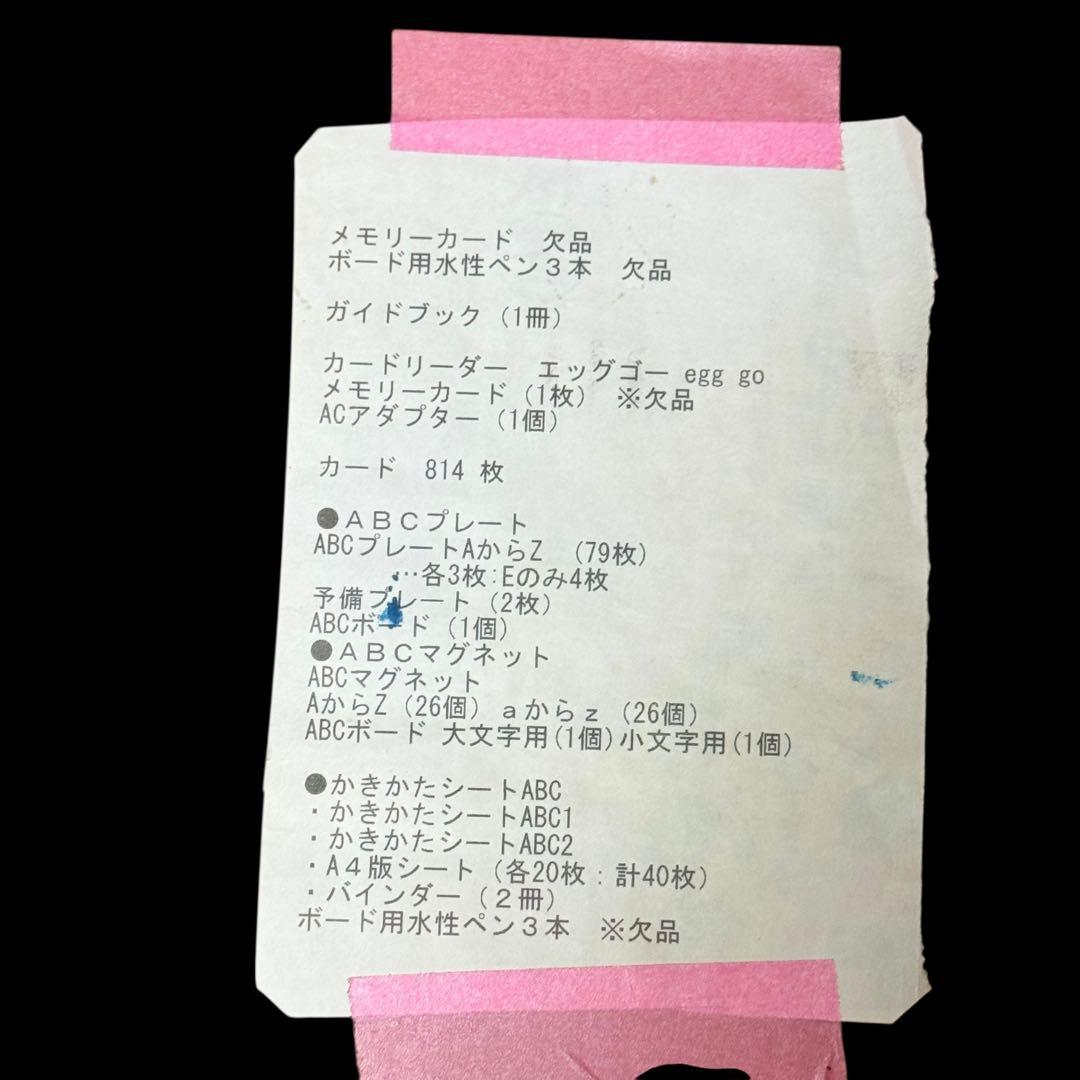 メモリーカード　欠品
ボード用水性ペン３本　欠品
ガイドブック（1冊）
カードリーダー　エッグゴー egg go
メモリーカード（1枚）　※欠品
ACアダプター（1個）
カード　814 枚
●ＡＢＣプレート
ABCプレートAからZ　（79枚）
…各3枚：Eのみ4枚
予備プレート（2枚）
ABCボード（1個）
●ＡＢＣマグネット
ABCマグネット
AからZ（26個）ａからｚ（26個）
ABCボード 大文字用(1個)小文字用(1個)
●かきかたシートABC
・かきかたシートABC1
・かきかたシートABC2
・A４版シート（各20枚：計40枚）
・バインダー（２冊）
ボード用水性ペン３本　※欠品